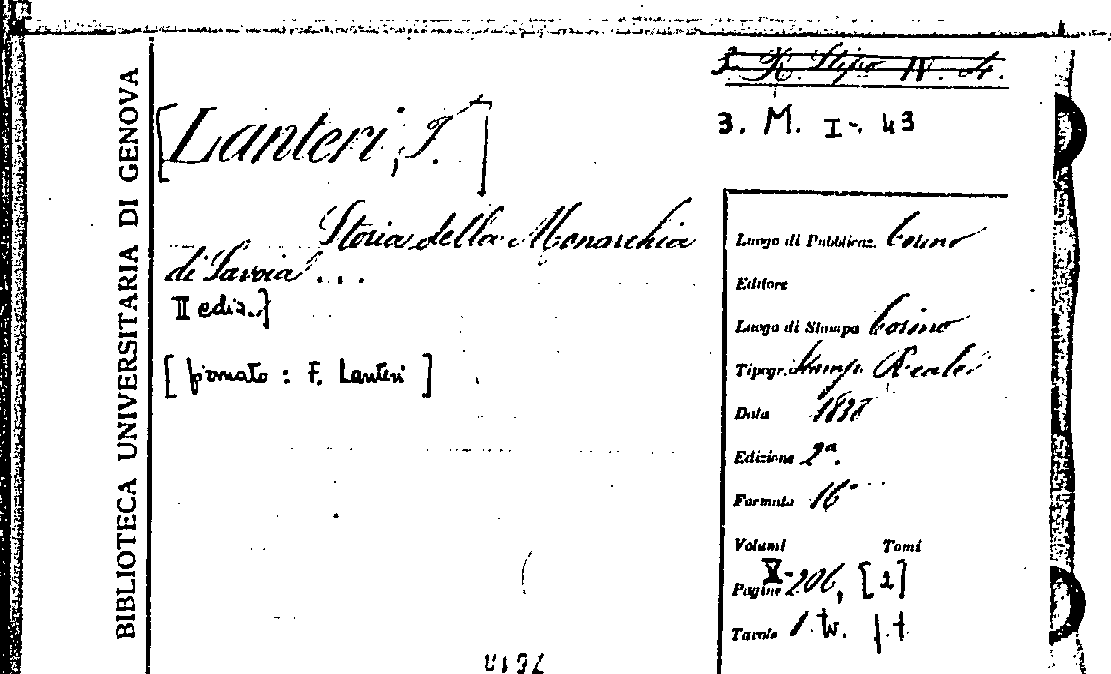 BIBLIOTECA UNIVERSITARIA DI GENOVA
3. M. I-. 43
[Lanteri, F.]
Storia della Monarchia
di Savoia ...
II ediz.]
[firmato : F. Lanteri ]
Luogo di Pubblicaz. Torino
Editore
Luogo di Stampa Torino
Tipogr. Stamp. Reale
Data
Edizione 2ª.
Formato 16°
Volumi Tomi
Pagine X-206, [2]
Tavole 1